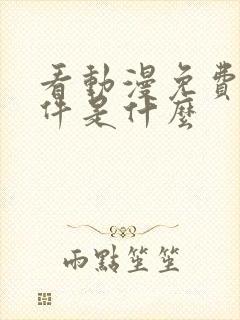 看動漫免費
件是什麼
雨點笙笙